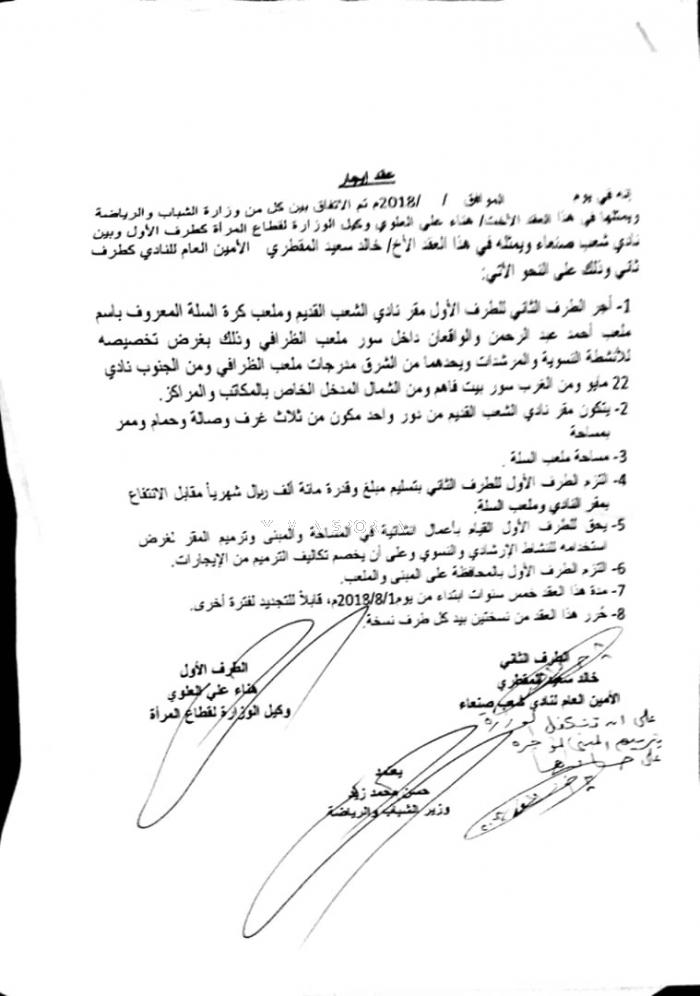 عقد إيجار
إنه في يوم الموافق / /2018م تم الاتفاق بين كل من وزارة الشباب والرياضة
ويمثلها في هذا العقد الأخت/ هناء علي العلوي وكيل الوزارة لقطاع المرأة كطرف الأول وبين
نادي شعب صنعاء ويمثله في هذا العقد الأخ/ خالد سعيد المقطري الأمين العام للنادي كطرف
ثاني وذلك على النحو الأتي:
1- أجر الطرف الثاني للطرف الأول مقر نادي الشعب القديم وملعب كرة السلة المعروف باسم
ملعب أحمد عبد الرحمن والواقعان داخل سور ملعب الظرافي وذلك بغرض تخصيصه
للأنشطة النسوية والمرشدات ويحدهما من الشرق مدرجات ملعب الظرافي ومن الجنوب نادي
22 مايو ومن الغرب سور بيت فاهم ومن الشمال المدخل الخاص بالمكاتب والمراكز.
2- يتكون مقر نادي الشعب القديم من دور واحد مكون من ثلاث غرف وصالة وحمام وممر
بمساحة
3- مساحة ملعب السلة .
4- التزم الطرف الأول للطرف الثاني بتسليم مبلغ وقدرة مائة ألف ريال شهرياً مقابل الانتفاع
بمقر النادي وملعب السلة.
5- يحق للطرف الأول القيام بأعمال انشائية في المساحة والمبنى وترميم المقر لغرض
استخدامه للنشاط الإرشادي والنسوي وعلى أن يخصم تكاليف الترميم من الإيجارات.
6- التزم الطرف الأول بالمحافظة على المبنى والملعب.
7- مدة هذا العقد خمس سنوات ابتداء من يوم 2018/8/1م، قابلاً للتجديد لفترة أخرى.
8- حُرر هذا العقد من نسختين بيد كل طرف نسخة.
الطرف الثاني
خالد سعيد المقطري
الأمين العام لنادي شعب صنعاء
الطرف الأول
هناء علي العلوي
وكيل الوزارة لقطاع المرأة
على ان تتكفل الوزارة
بترميم المبنى المؤجرة
على حسابها
يعتمد
حسن محمد زيد
وزير الشباب والرياضة